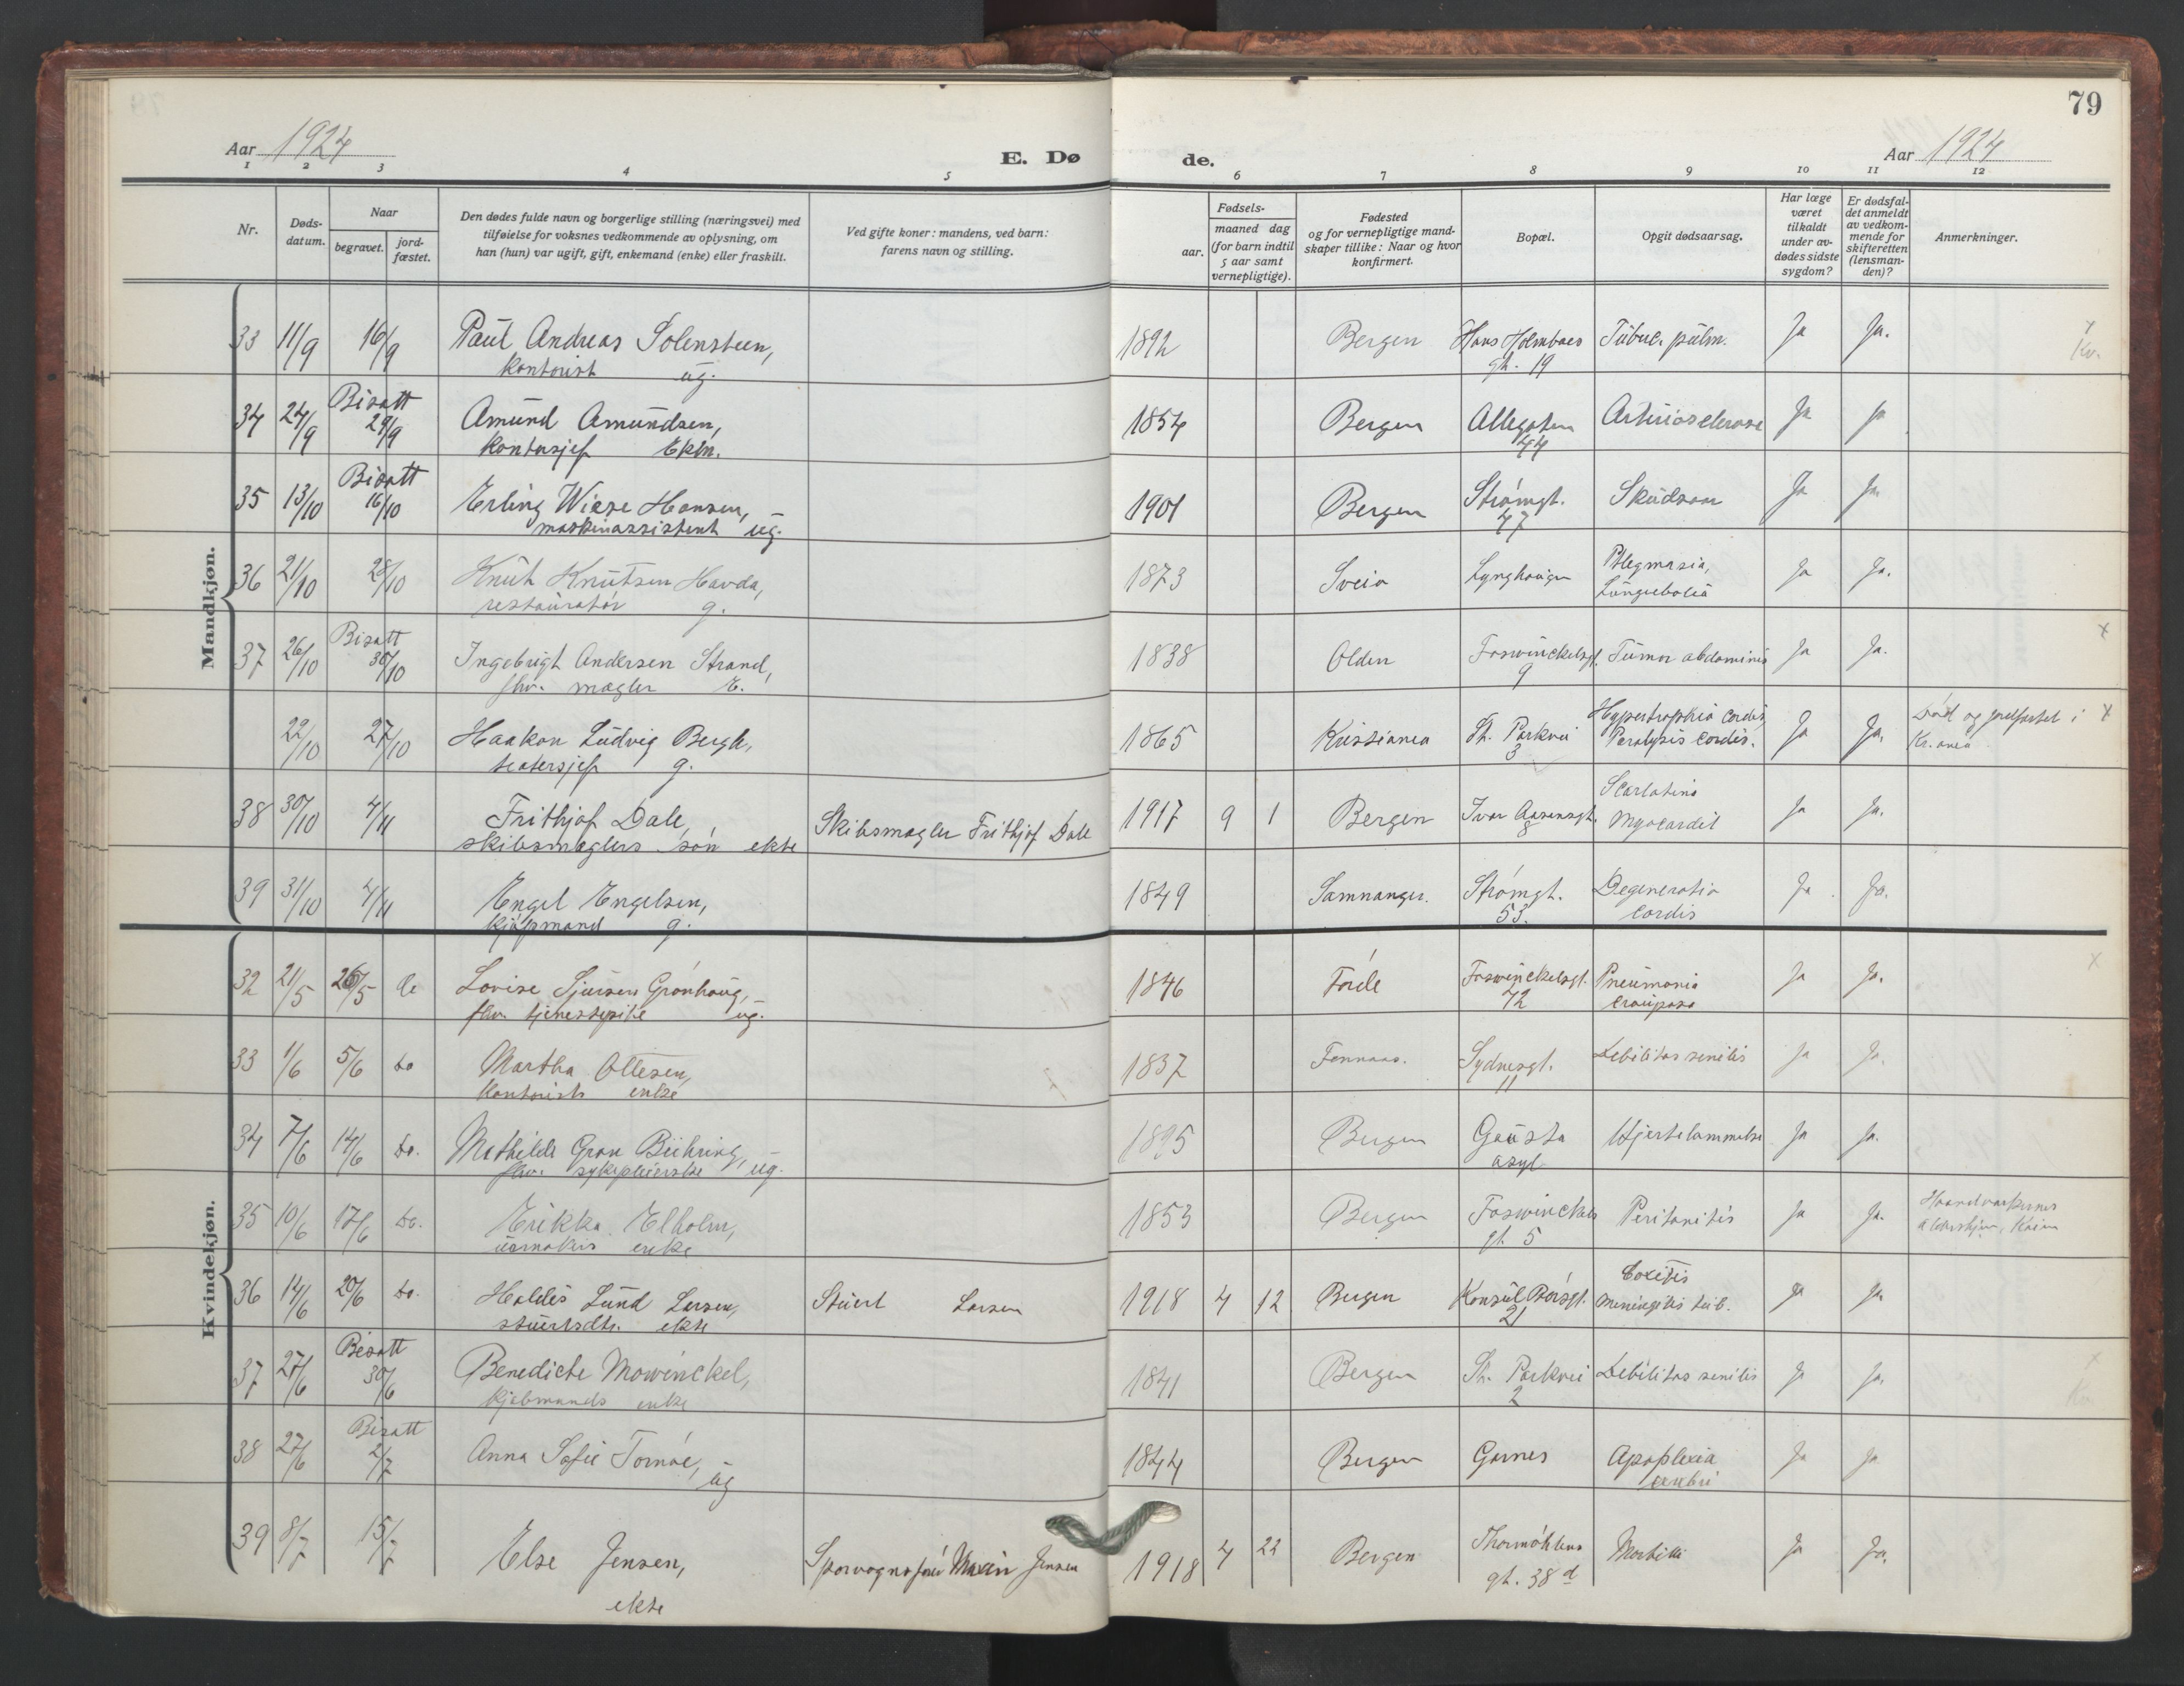 79
Aar 1924
E. Dø de.
Aar 1924
1 2 3 4 5 6 7 8 9 10 11 12
Nr.
Døds-
datum.
Naar
begravet.
jord-
fæstet.
Den dødes fulde navn og borgerlige stilling (næringsvei) med
tilføielse for voksnes vedkommende av oplysning, om
han (hun) var ugift, gift, enkemand (enke) eller fraskilt.
Ved gifte koner: mandens, ved barn:
farens navn og stilling.
Fødsels-
aar.
maaned dag
(for barn indtil
5 aar samt
vernepligtige).
Fødested
og for vernepligtige mand-
skaper tillike: Naar og hvor
konfirmert.
Bopæl.
Opgit dødsaarsag.
Har læge
været
tilkaldt
under av-
dødes sidste
sygdom?
Er dødsfal-
det anmeldt
av vedkom-
mende for
skifteretten
(lensman-
den)?
Anmerkninger.
Mandkjøn.
33 11/9 16/9 Paul Andreas Solensteen, 1892 Bergen Hans Holmboes Tubul. pulm. Ja Ja. Kv.
kontorist ug. gt. 19
Bisatt
34 24/9 29/9 Amund Amundsen, 1854 Bergen Allegaten Arteriosclerose Ja Ja
kontorsjef Ekm. 44
Bisatt
35 13/10 16/10 Erling Wiese Hansen, 1901 Bergen Strömgt. Skudsaar Ja Ja
maskinassistent ug. 47
36 21/10 28/10 Knut Knutsen Havda, 1873 Sveio Lynghaugen Phlegmasia, Ja Ja.
restauratör g.
Bisatt
37 26/10 30/10 Ingebrigt Andersen Strand, 1838 Olden Foswinckelsgt. Tumor abdominis Ja Ja. x
fhv. mægler E. 9
22/10 27/10 Haakon Ludvig Bergh, 1865 Kristiania St. Parkvei Hypertrophia cordis, Ja Ja. Död og jordfæstet i x
teatersjef g. 3 Paralysis cordis. Kr.ania
38 30/10 4/11 Frithjof Dale, Skibsmægler Frithjof Dale 1917 9 1 Bergen Ivar Aasensgt. Scarlatina Ja Ja.
skibsmæglers sön ekte 8 Myocardit
39 31/10 4/11 Engel Engelsen, 1849 Samnanger. Strömgt. Degeneratio Ja Ja.
kjöpmand g. 53. cordis
Kvindekjøn.
32 21/5 26/5 Lovise Sjursen Grönhaug, 1846 Förde Foswinckelsgt. Pneumonia Ja Ja. x
fhv. tjenestepike ug. 72 crouposa
33 1/6 5/6 do Martha Ottesen, 1837 Sydnesgt. Debilitas senilis Ja Ja.
kontorists enke 11
34 7/6 14/6 do. Mathilde Gran Bühring, 1895 Bergen Gausta Hjertelammelse Ja Ja.
fhv. sykepleierske ug. asyl
35 10/6 17/6 do. Erikka Elholm, 1853 Bergen Foswinckels Peritonitis Ja Ja. Haandverkernes
urmakers enke gt. 5 Aldershjem, Kaien
36 14/6 20/6 do. Haldis Lund Larsen, Stuert Larsen 1918 4 12 Bergen Konsul Börsgt. Coxitis Ja Ja
stuertsdtr. ekte 21 Meningitis tub.
Bisatt
37 27/6 30/6 Benedicte Mowinckel, 1841 Bergen St. Parkvei Debilitas senilis Ja Ja. x
kjöbmands enke 2 Kv.
Bisatt
38 27/6 2/7 Anna Sofie Tornöe, 1844 Bergen Garnes Apoplexia Ja Ja
ug cerebri
39 8/7 15/7 Else Jensen, Jensen 1918 4 22 Bergen Thormöhlens Morbilli Ja Ja.
ekte gt. 38 d